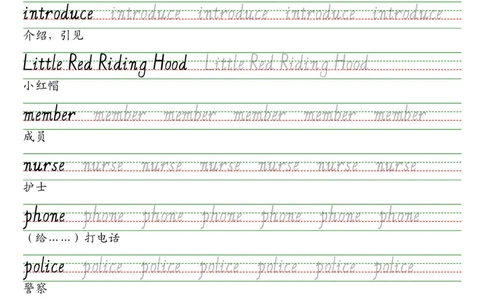 introduce introduce introduce introduce introduce introduce
介绍，引见
Little Red Riding Hood Little Red Riding Hood
小红帽
member member member member member member
成员
nurse nurse nurse nurse nurse nurse nurse
护士
phone phone phone phone phone phone phone
（给……）打电话
police police police police police police police
警察